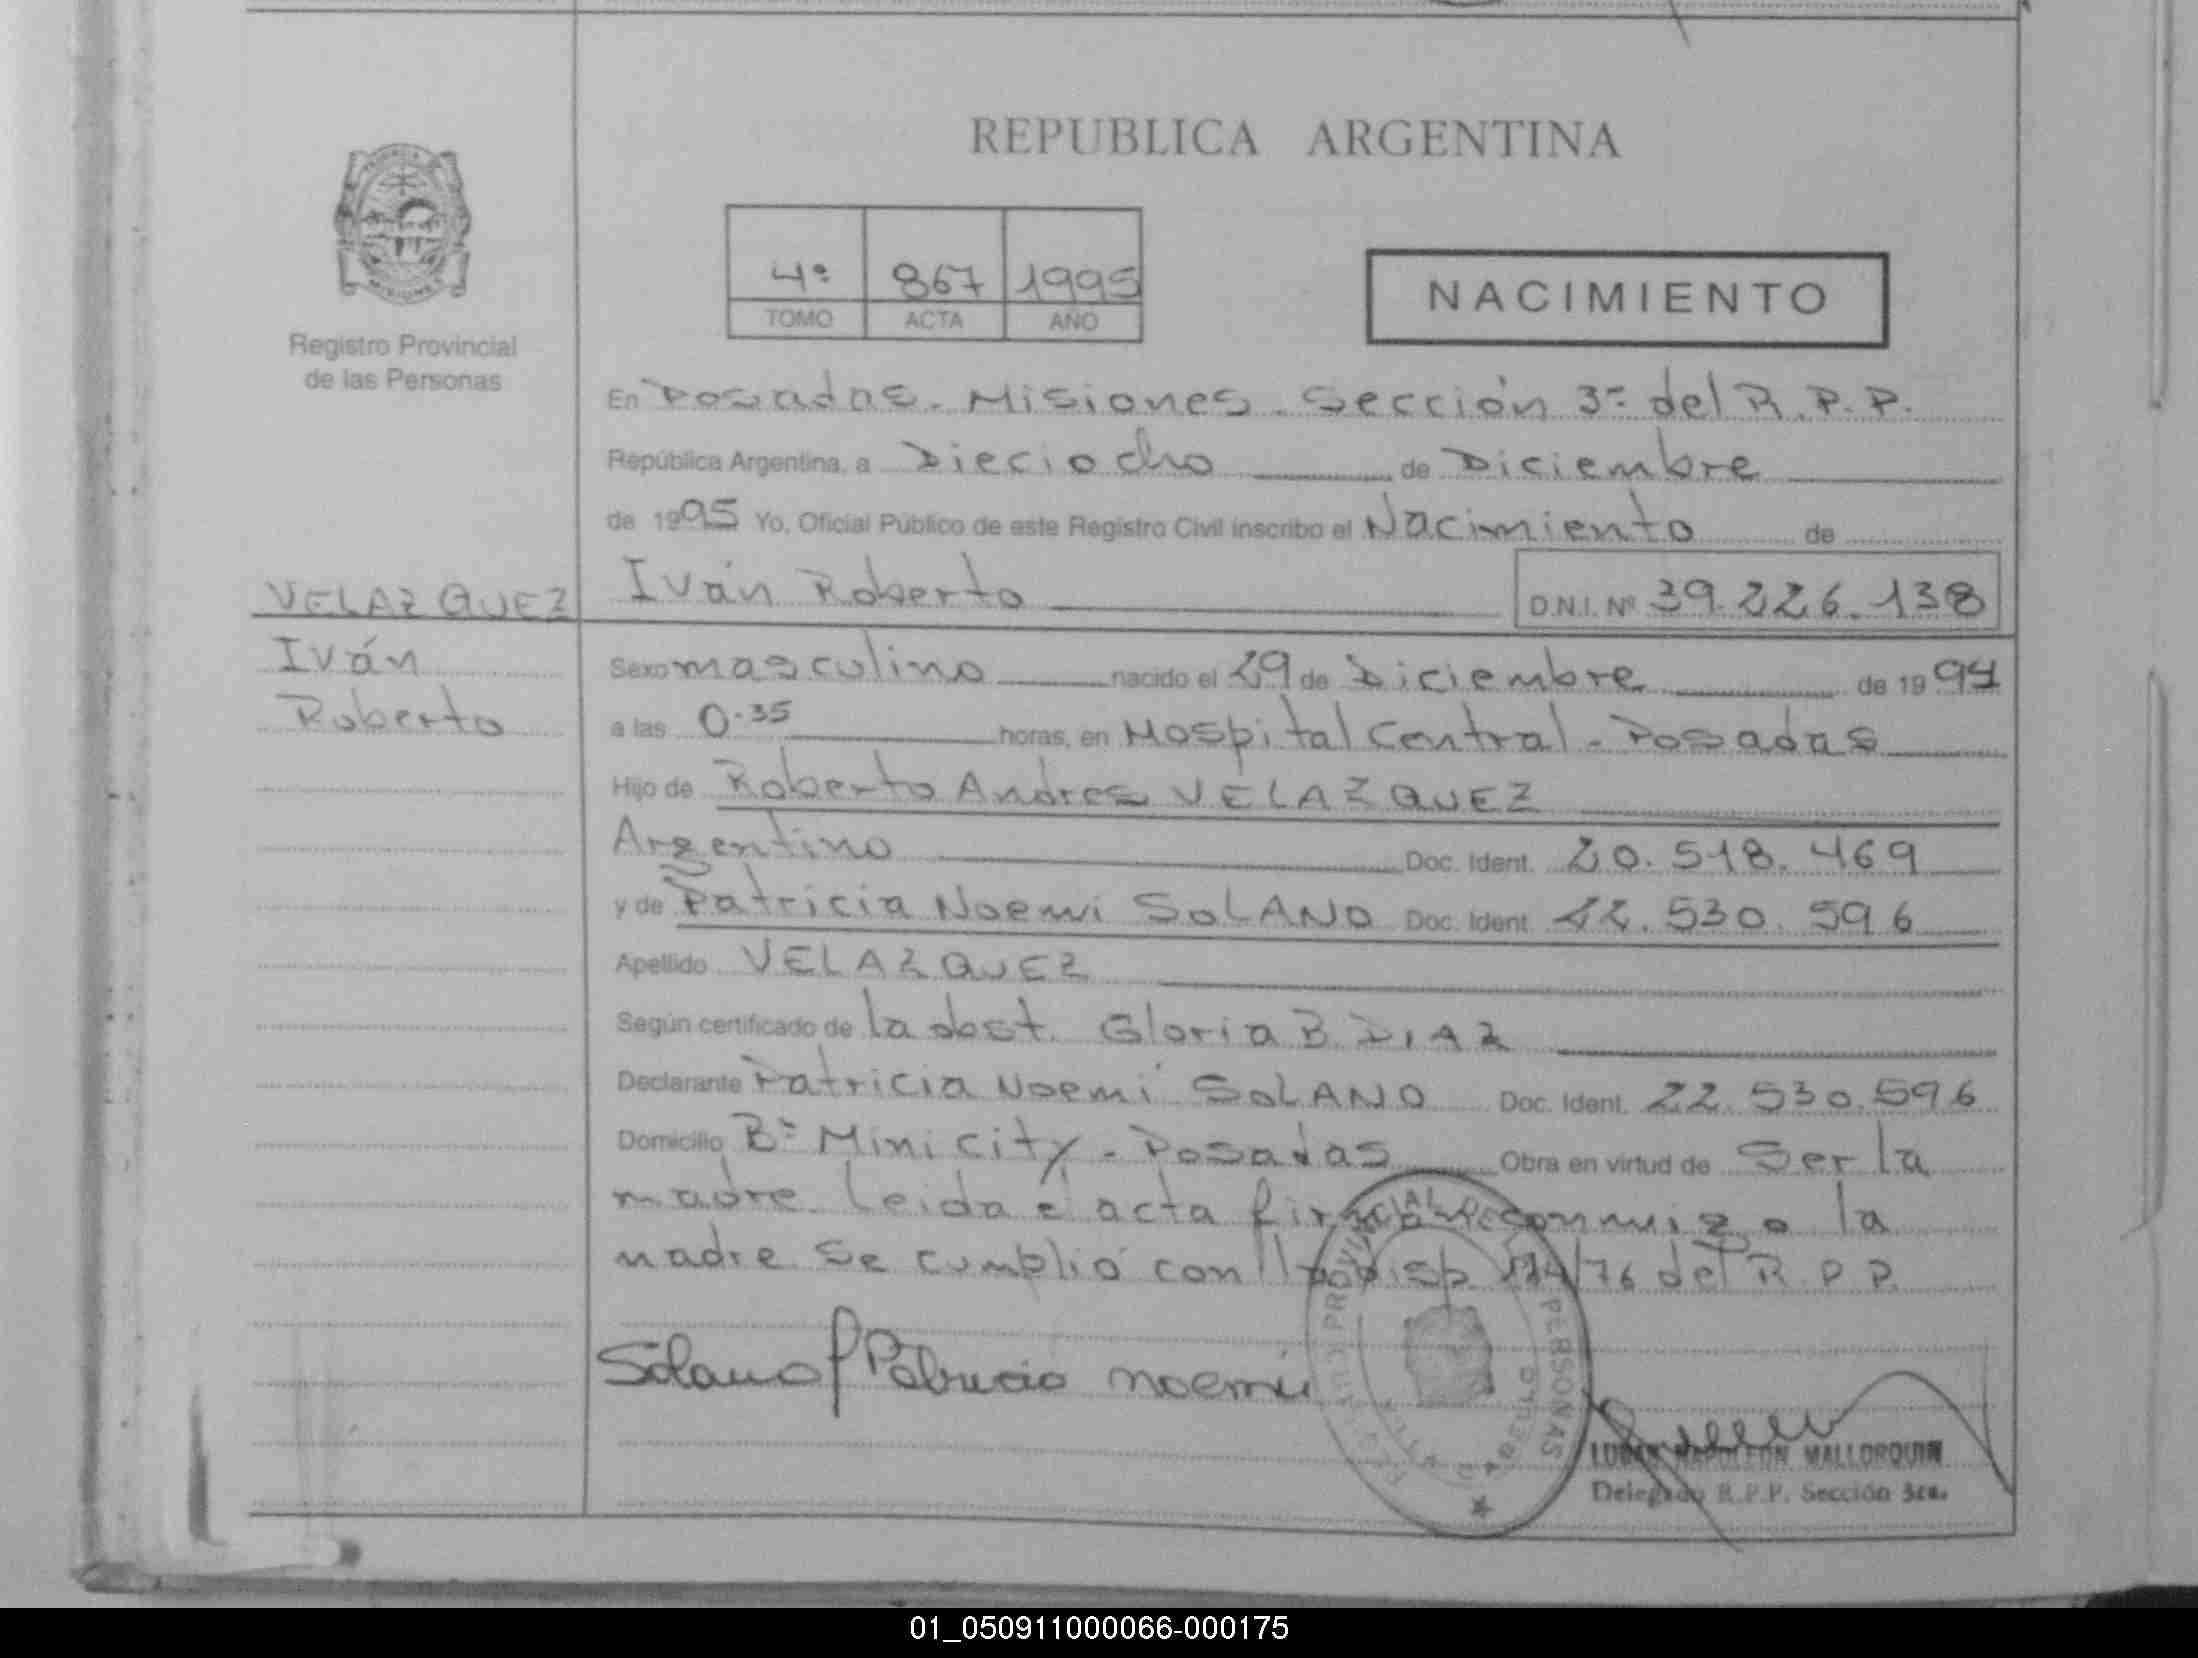 REPUBLICA ARGENTINA
PROVINCIA DE
MISIONES
Registro Provincial
de las Personas
4º 867 1995
TOMO ACTA AÑO
NACIMIENTO
En Posadas. Misiones. Sección 3º del R.P.P.
República Argentina, a Dieciocho de Diciembre
de 1995 Yo, Oficial Público de este Registro Civil inscribo el Nacimiento de
VELAZQUEZ
Iván
Roberto
Iván Roberto D.N.I. Nº 39.226.138
Sexo masculino nacido el 29 de Diciembre de 1994
a las 0.35 horas, en Hospital Central - Posadas
Hijo de Roberto Andres VELAZQUEZ
Argentino Doc. Ident. 20.518.469
y de Patricia Noemi SOLANO Doc. Ident. 22.530.596
Apellido VELAZQUEZ
Según certificado de la obst. Gloria B. DIAZ
Declarante Patricia Noemí SOLANO Doc. Ident. 22.530.596
Domicilio Bº Mini City - Posadas Obra en virtud de Ser la
madre. Leida el acta firma conmigo la
madre se cumplió con la Disp. 174/76 del R.P.P.
Solano Patricia Noemi
PROVINCIAL DE PERSONAS
LUCAS NAPOLEON MALLORQUIN
Delegado R.P.P. Sección 3ra.
01_050911000066-000175